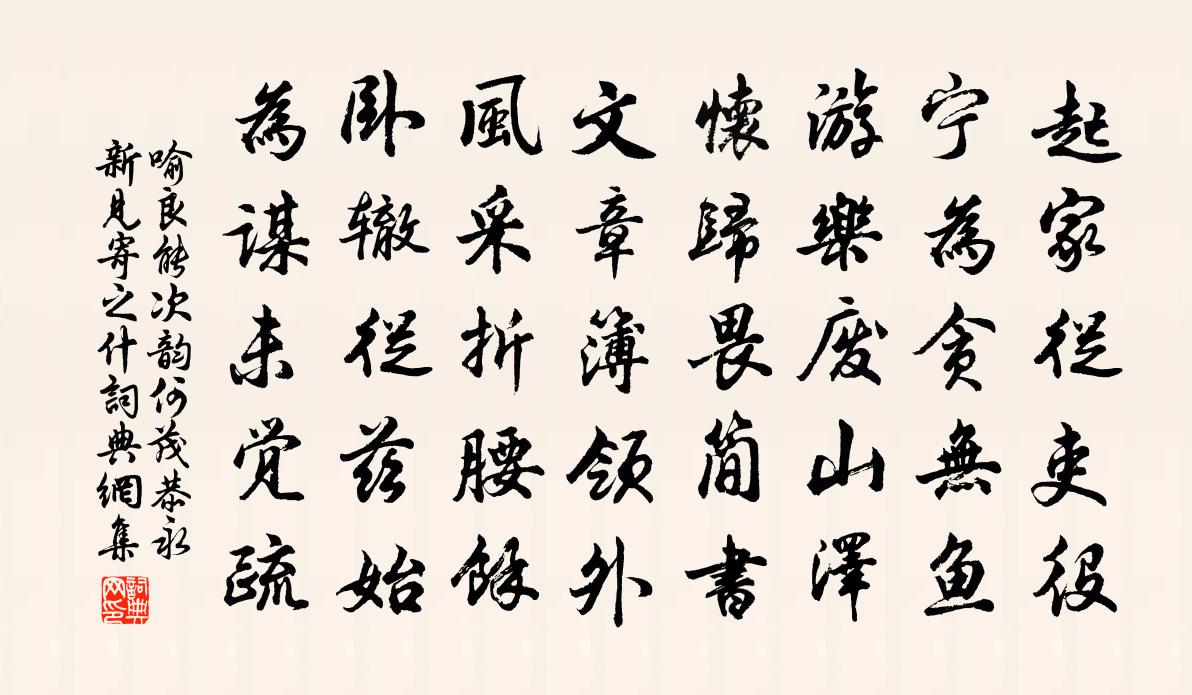 起家從吏役
宁為貪無魚
游樂廢山澤
懷歸畏簡書
文章簿領外
風采折腰餘
卧轍從兹始
為謀未覺疏
喻良能次韵何茂恭永
新見寄之什詞典網集
詞典網印